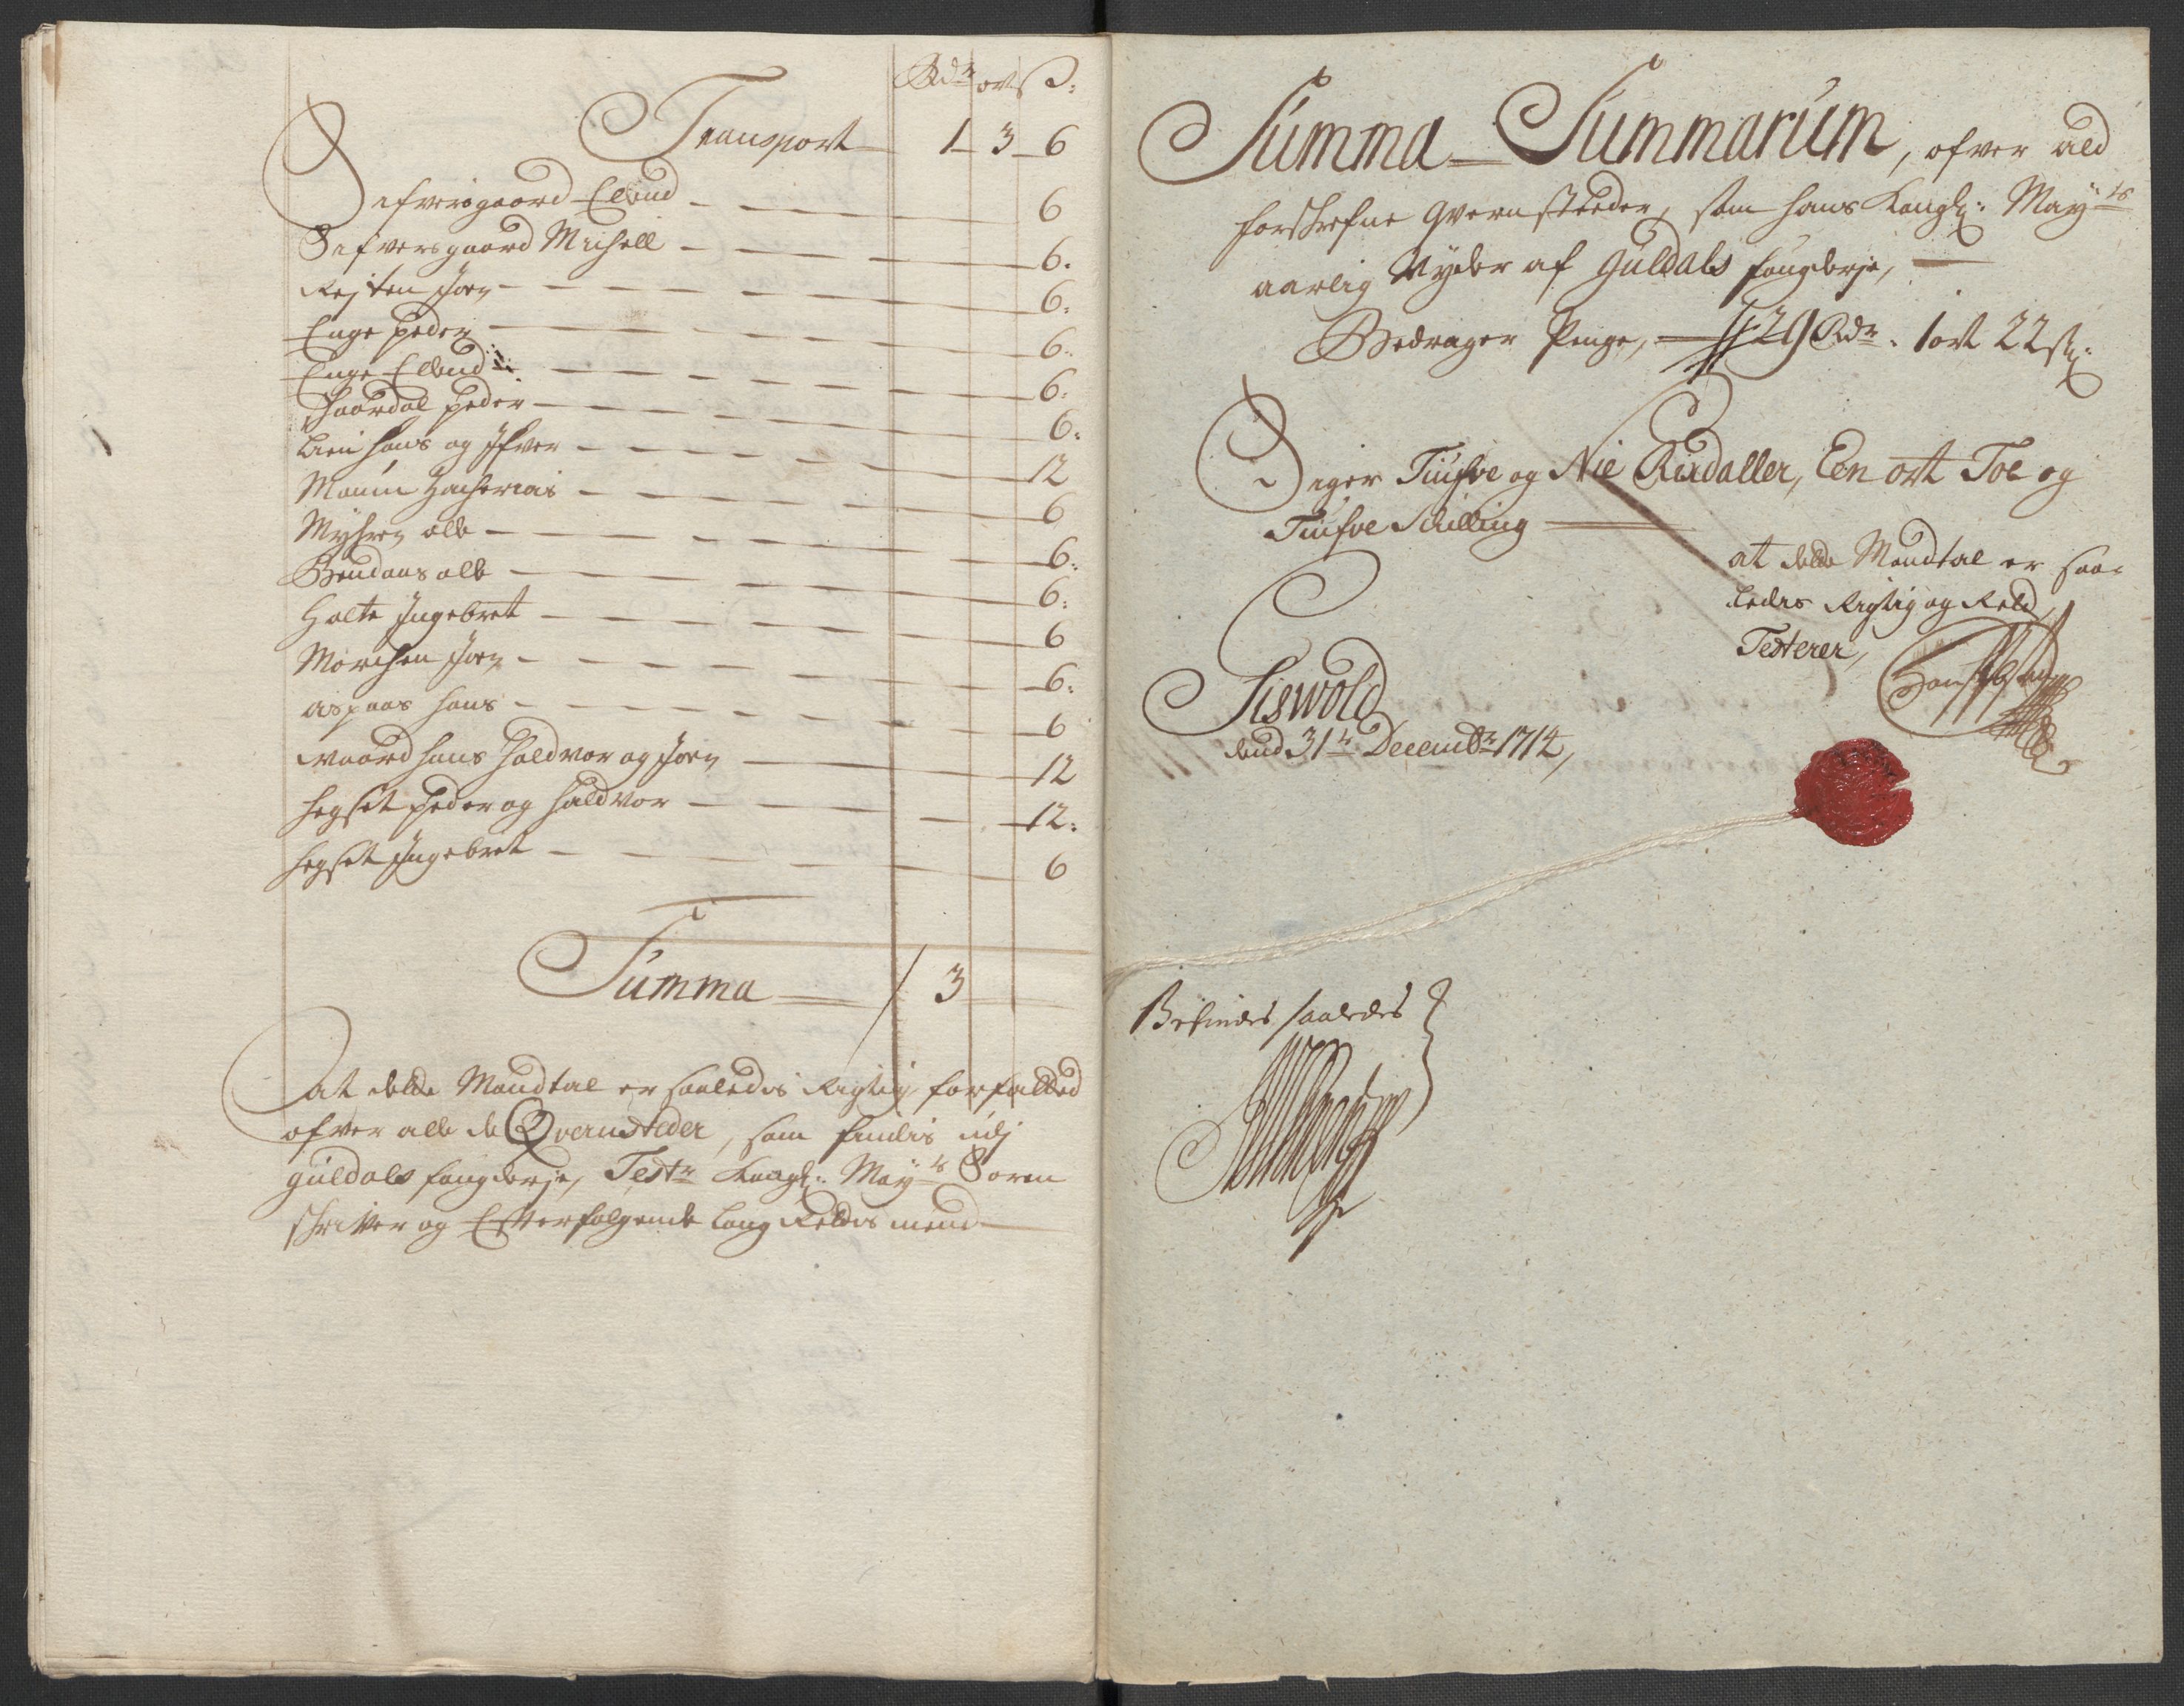 Rdr ort ß:
Transport 1 3 6
Sifversgaard Ellend 6
Sifversgaard Michell 6.
Rejten Joen 6:
Enge peder 6.
Enge Ellend 6:
haardal peder 6:
Lien hans og Ifver 12
Moum Zacharias 6
Myhren olle 6:
Bendaas olle 6:
Holte Ingebret 6
Morchen Joen 6:
aspaas hans 6
waard hans haldvor og Joen 12
hegset peder og haldvor 12:
hegset Ingebret 6
Summa / 3
at dette Mandtal er saaledis Rigtig forfatted
ofver alle de Qvernsteder, som findis udj
Guldals fougderje, Testr Kongl: Mayts Soren
schriver og Efterfølgende Laug Rettis mend
Summa Summarum, ofver ald
forschrefne qvernsteeder, som hans Kongl: Mayts
aarlig Nyder af Guldals fougderje,
Bedrager Penge, 29 Rdr. 1 ort 22 ß:
Siger Tiufve og Nie Rixdaller, Een ort Toe og
Tiufve Schilling
at dette Mandtal er saa-
ledis Rigtig og Rett,
Testerer,
Siswold
dend 31te Decembr 1714,
Befindes saaledes